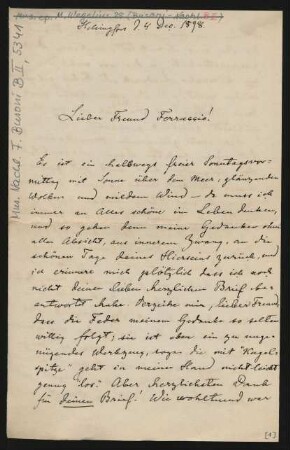 Mus. Nachl. F. Busoni B II, 5341
Helsingfors d. 4 Dez. 1898.
Lieber Freund Ferruccio!
Es ist ein halbwegs freier Sonntagsvor-
mittag mit Sonne über dem Meer, glänzenden
Wolken und mildem Wind – da muss ich
immer an Alles schöne im Leben denken,
und so gehen denn meine Gedanken ohne
alle Absicht, aus innerem Zwang, an die
schönen Tage deines Hierseins zurück, und
ich erinnere mich plötzlich dass ich noch
nicht deinen lieben herzlichen Brief be-
antwortet habe. Verzeihe mir, lieber Freund,
dass die Feder meinem Gedanken so selten
willig folgt; sie ist eben ein zu unge-
nügendes Werkzeug, sogar die mit "Kugel-
spitze" geht in meiner Hand nicht leicht
genug los. Aber herzlichsten Dank
für deinen Brief! Wie wohltuend war
[1]